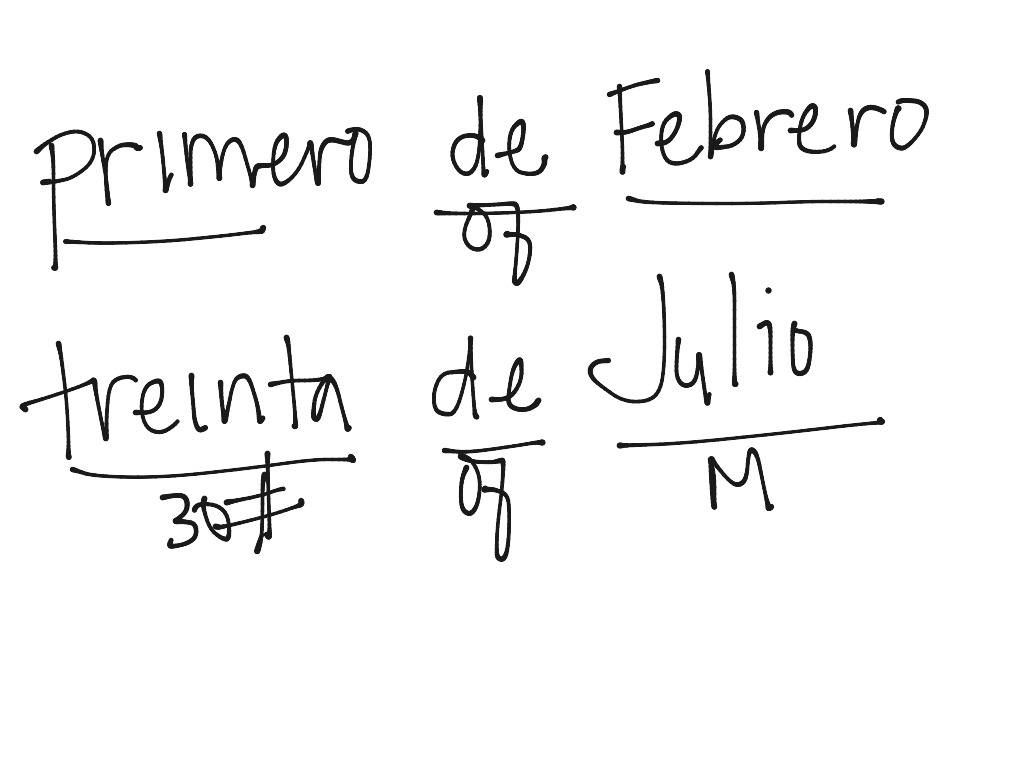 primero de Febrero
of
treinta de Julio
30# of M